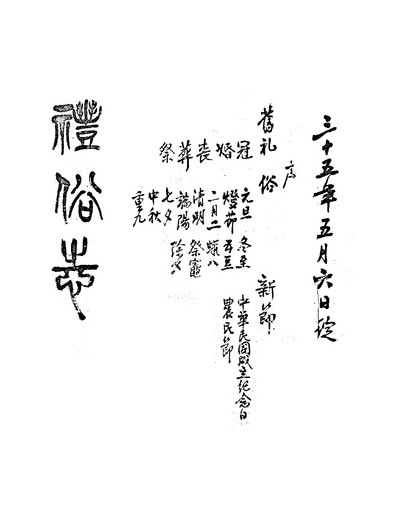 三十五年五月六日
序
舊礼俗
冠婚喪葬祭
元旦
燈節
二月二
清明
端陽
七夕
中秋
重九
冬至
五豆
臘八
祭竈
除夕
新節
中華民國成立紀念日
農民節
禮俗志